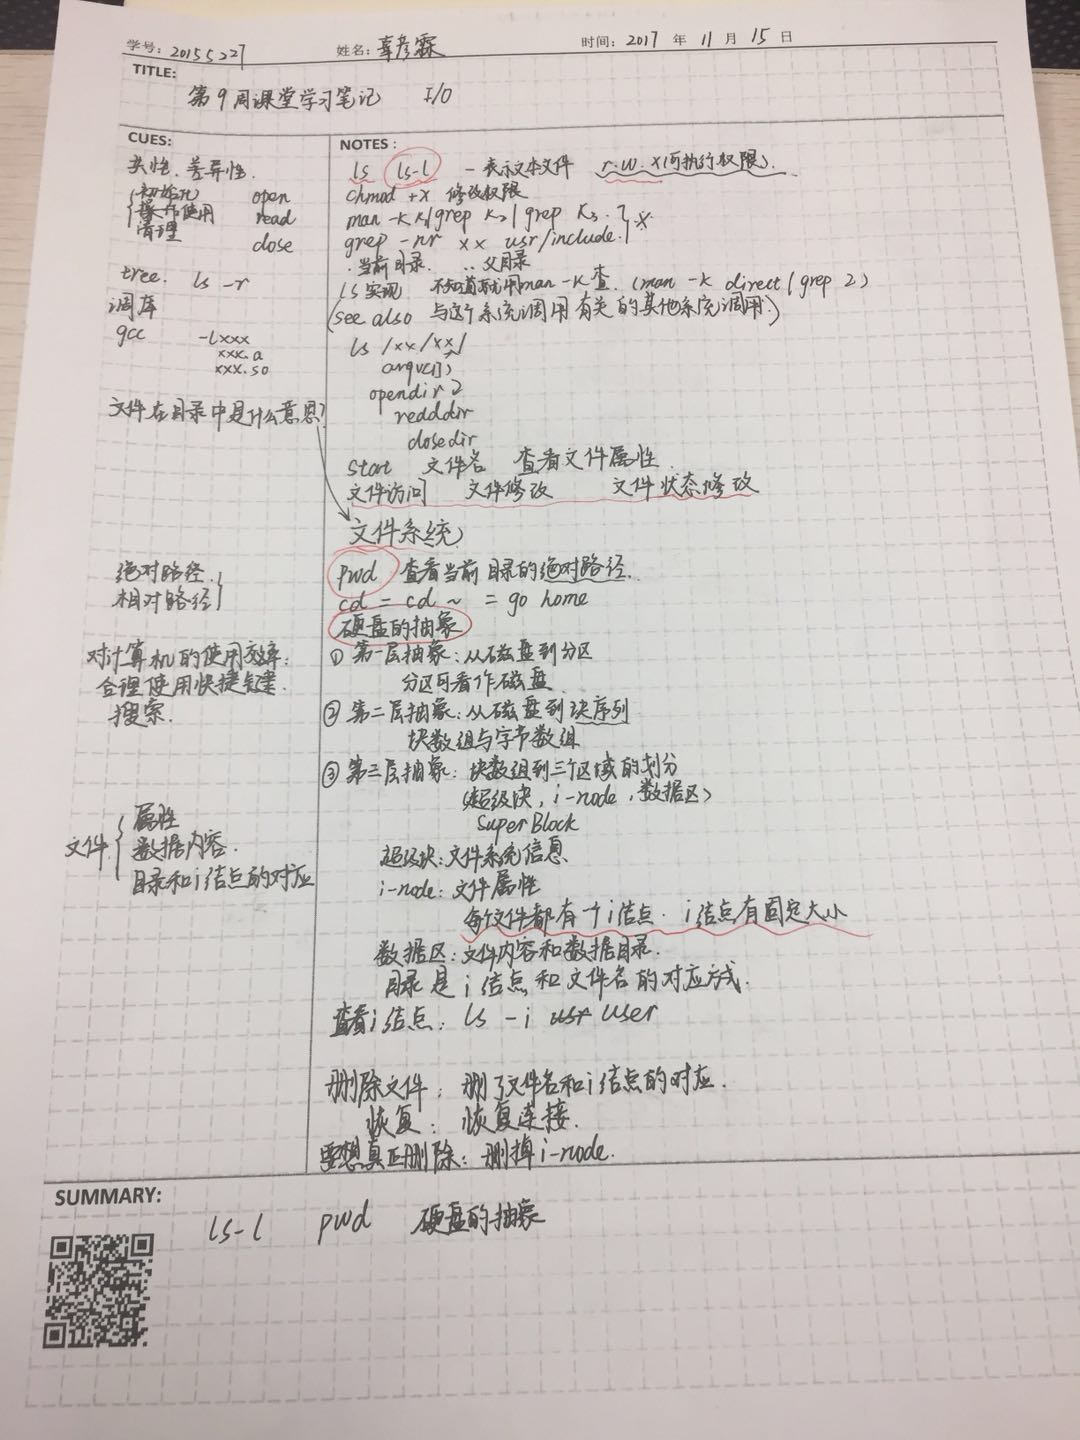 学号: 20155227 姓名: 辜彦霖 时间: 2017 年 11 月 15 日
TITLE:
第9周课堂学习笔记 I/O
CUES:
类性. 差异性.
初始化 open
操作使用 read
清理 close
tree. ls -r
调库
gcc -lxxx
xxx.a
xxx.so
文件在目录中是什么意思?
绝对路径.
相对路径
对计算机的使用效率:
合理使用快捷键.
搜索.
文件
属性
数据内容.
目录和i结点的对应
NOTES :
ls ls-l - 表示文本文件 r.w.x(可执行权限).
chmod +x 修改权限
man -k k1|grep k2|grep k3. *
grep -nr xx usr/include.
. 当前目录. .. 父目录
ls实现 不知道就用man -k查. (man -k direct|grep 2)
(see also 与这个系统调用有关的其他系统调用.)
ls /xx/xx/
argv[1]
opendir 2
readdir
closedir
start 文件名 查看文件属性.
文件访问 文件修改 文件状态修改
文件系统
pwd 查看当前目录的绝对路径.
cd = cd ~ = go home
硬盘的抽象
① 第一层抽象: 从磁盘到分区
分区可看作磁盘
② 第二层抽象: 从磁盘到块序列
块数组与字节数组
③ 第三层抽象: 块数组到三个区域的划分
(超级块, i-node, 数据区)
SuperBlock
超级块: 文件系统信息.
i-node: 文件属性
每个文件都有一个i结点. i结点有固定大小
数据区: 文件内容和数据目录.
目录是i结点和文件名的对应方式.
查看i结点: ls -i user
删除文件: 删了文件名和i结点的对应.
恢复: 恢复连接.
要想真正删除: 删掉i-node.
SUMMARY:
ls-l pwd 硬盘的抽象